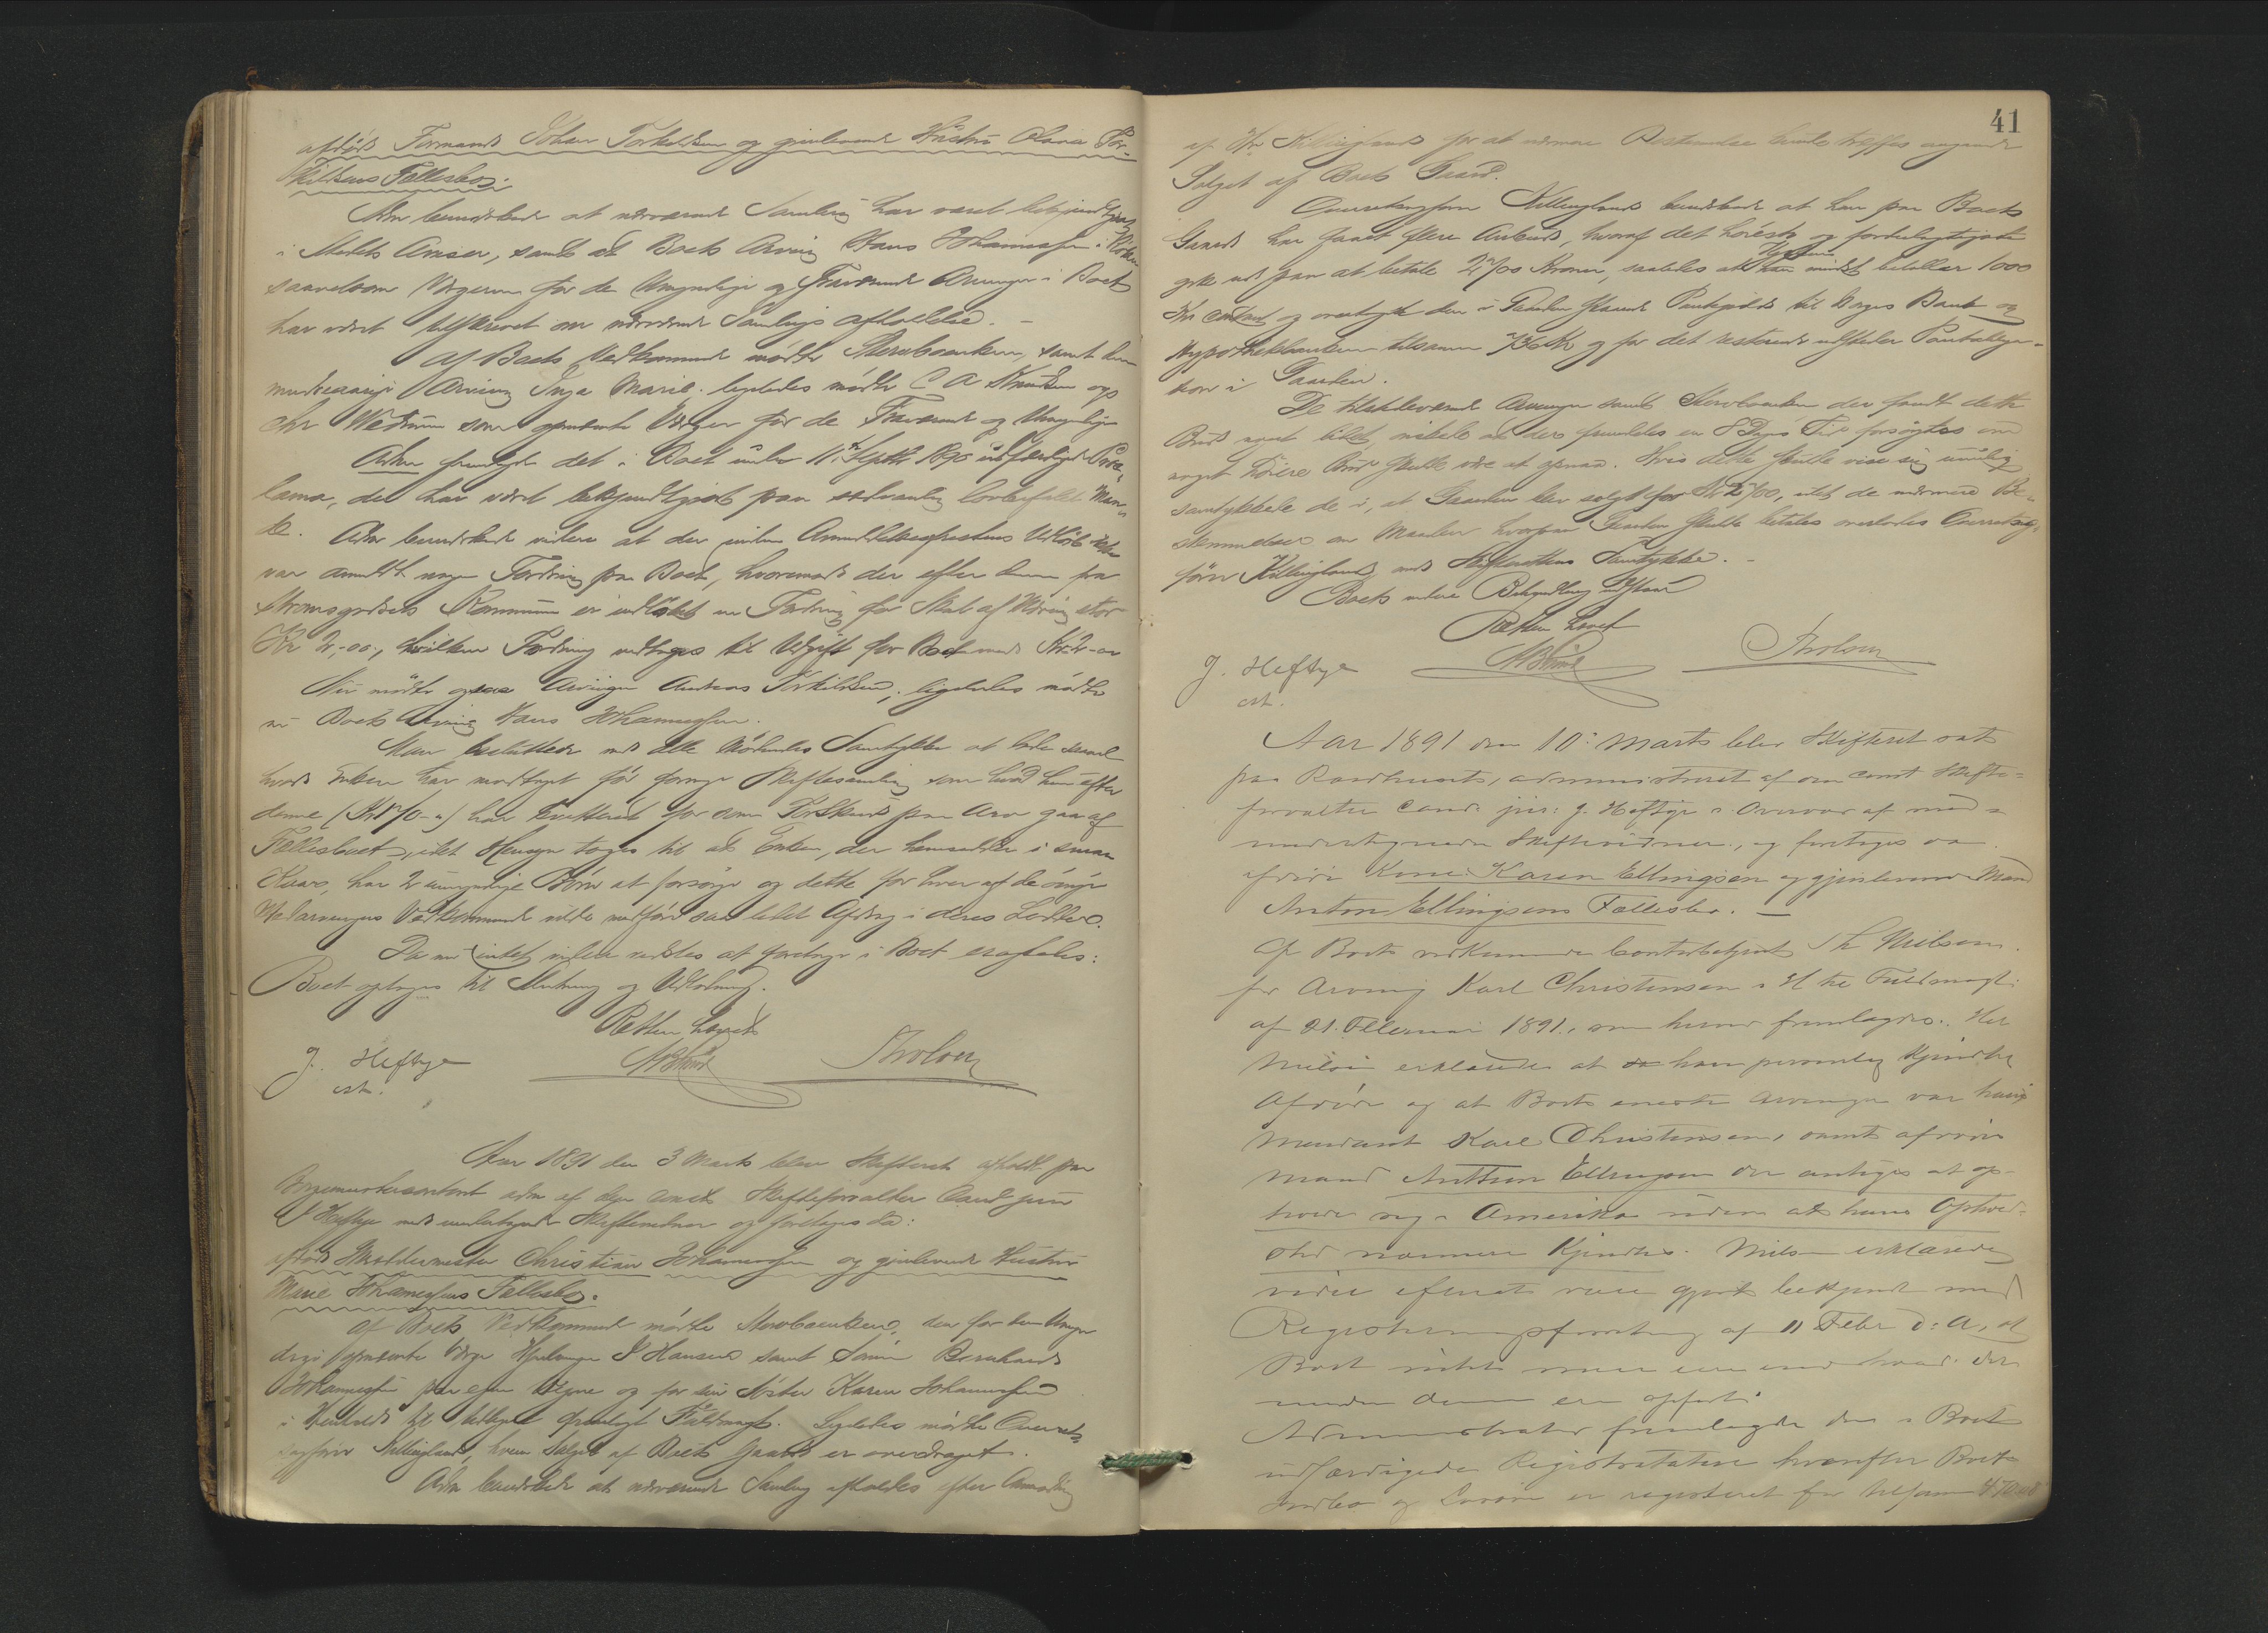 afdøde Formand Johan Torkildsen og gjenlevende Hustru Olava Tor-
kildsens Fællesbo:
Adm bemærkede at nærværende Samling har været bekjendtgjort
i Stedets Aviser, samt at Boets Arving Hans Johannessen i
saavelsom Værgerne for de Umyndige og Fraværende Arvinger i Boet
har været tilskrevet om nærværende Samlings Afholdelse. –
Af Boets Vedkommende mødte Stervboenken, samt den
mindreaarige Arving Inga Marie. ligeledes mødte C A Knudsen og
Chr Wedum som opnævnte Værger for de Fraværende og Umyndige
Adm fremlagde det i Boet under 11te Septbr 1890 udfærdigede Proc-
lama, der har været bekjendtgjort paa sædvanlig lovbefalet Maa-
de. Adm bemærkede videre at der inden Anmeldelsesfristens Udløb ikke
var anmeldt nogen Fordring paa Boet, hvoremod der efter denne fra
Strømsgodsets Kommune er indløbet en Fordring for Skat af Næring stor
Kr 2,-00, hvilken Fordring vedtoges til Udgift for Boet med Kr 2-00
Nu mødte ogsaa Arvingen Andreas Torkildsen, ligeledes mødte
nu Boets Arving Hans Johannessen.
Man besluttede med alle Mødendes Samtykke at lade saavel
hvad Enken har modtaget før forrige Skiftesamling som hvad hun efter
denne har kvitteret for som Forskud paa Arv gaa af
Fællesboet, idet Hensyn toges til at Enken, der hensidder i smaa
Kaar, har 2 umyndige Børn at forsørge og dette for hver af de øvrige
Medarvingers Vedkommende vilde medføre saa lidet Afdrag i deres Lodder.
Da nu intet videre vidstes at foretage i Boet erafsaes:
Boet optages til Slutning og Udlodning.
Retten hævet
J. Heftye
cst.
Aar 1891 den 3 Marts blev Skifteret afholdt paa
Borgemestercontoret adm af den const Skifteforvalter Cand juris
J Heftye med undertegnede Skiftevidner og foretoges da:
afdøde Christian Johannessen og gjenlevende Hustru
Marie Johannessens Fællesbo.
Af Boets Vedkommende mødte Stervboenken, den for den Umyn-
dige opnævnte Værge I Hansen samt Sønnen Bernhard
Johannessen paa egne Vegne og for sin Søster Karen Johannessen
i Henhold til tidligere fremlagt Fuldmagt. Ligeledes mødte Overrets-
sagfører Killingland, hvem Salget af Boets Gaard er overdraget.
Adm bemærkede at nærværende Samling afholdes efter Anmodning
41
af Hr Killingland for at nærmere Bestemmelse kunde træffes angaaende
Salget af Boets Gaard.
Overretssagfører Killingland bemærkede at han paa Boets
Gaard har faaet flere Anbud, hvoraf det høieste og fordelagtigste
gik ud paa at betale Kroner, saaledes at Kjøberen betaler 1000
Kr contant og overtager den i Gaarden staaende Pantegjæld til Norges Bank og
Hypothekbanken tilsammen Kr og for det resterende udsteder Panteobliga-
tion i Gaarden.
De tilstedeværende Arvinger samt Stervboenken der fandt dette
Bud noget lidet, at der fremdeles en 8 Dages Tid forsøgtes om
noget høiere Bud skulde være at opnaa. Hvis dette skulde vise sig umulig
samtykkede de i, at Gaarden blev solgt for Kr, idet de nærmere Be-
stemmelser om Maaden hvorpaa Gaarden skulde betales overlodes Overretssag-
fører Killingland med Skifterettens Samtykke. –
Boets videre Behandling udstaar
Retten hævet
J. Heftye
cst.
Aar 1891 den 10: Marts blev Skifteret sat
paa Raadhuset, administreret af den const Skifte-
forvalter cand: jur: J. Heftye i Overvær af med-
undertegnede Skiftevidner, og foretoges da
afdøde Kone Karen Ellingsen og gjenlevende Mand
Anton Ellingsens Fællesbo. –
Af Boets vedkommende Contorbetjent Th Nielsen
for Arving Karl Christensen i H til Fuldmagt
af 21. Februar 1891, som herved fremlagdes. Hr
Nielsen erklærede at han personlig kjendte
Afdøde og at Boets eneste Arvinger var hans
Mandant Karl Christensen, samt afdødes
Mand Anthon Ellingsen der antages at op-
holde sig i Amerika uden at hans Ophold-
sted nærmere kjendtes. Nielsen erklærede
videre efterat være gjort bekjendt med
Registreringsforretning af 11 Febr d: A, at
Boet intet mere eiede end hvad der
under denne er opført.
Administrator fremlagde den i Boet
udfærdigede Registratation hvorefter Boets
Indbo og Løsøre er registreret for tilsammen